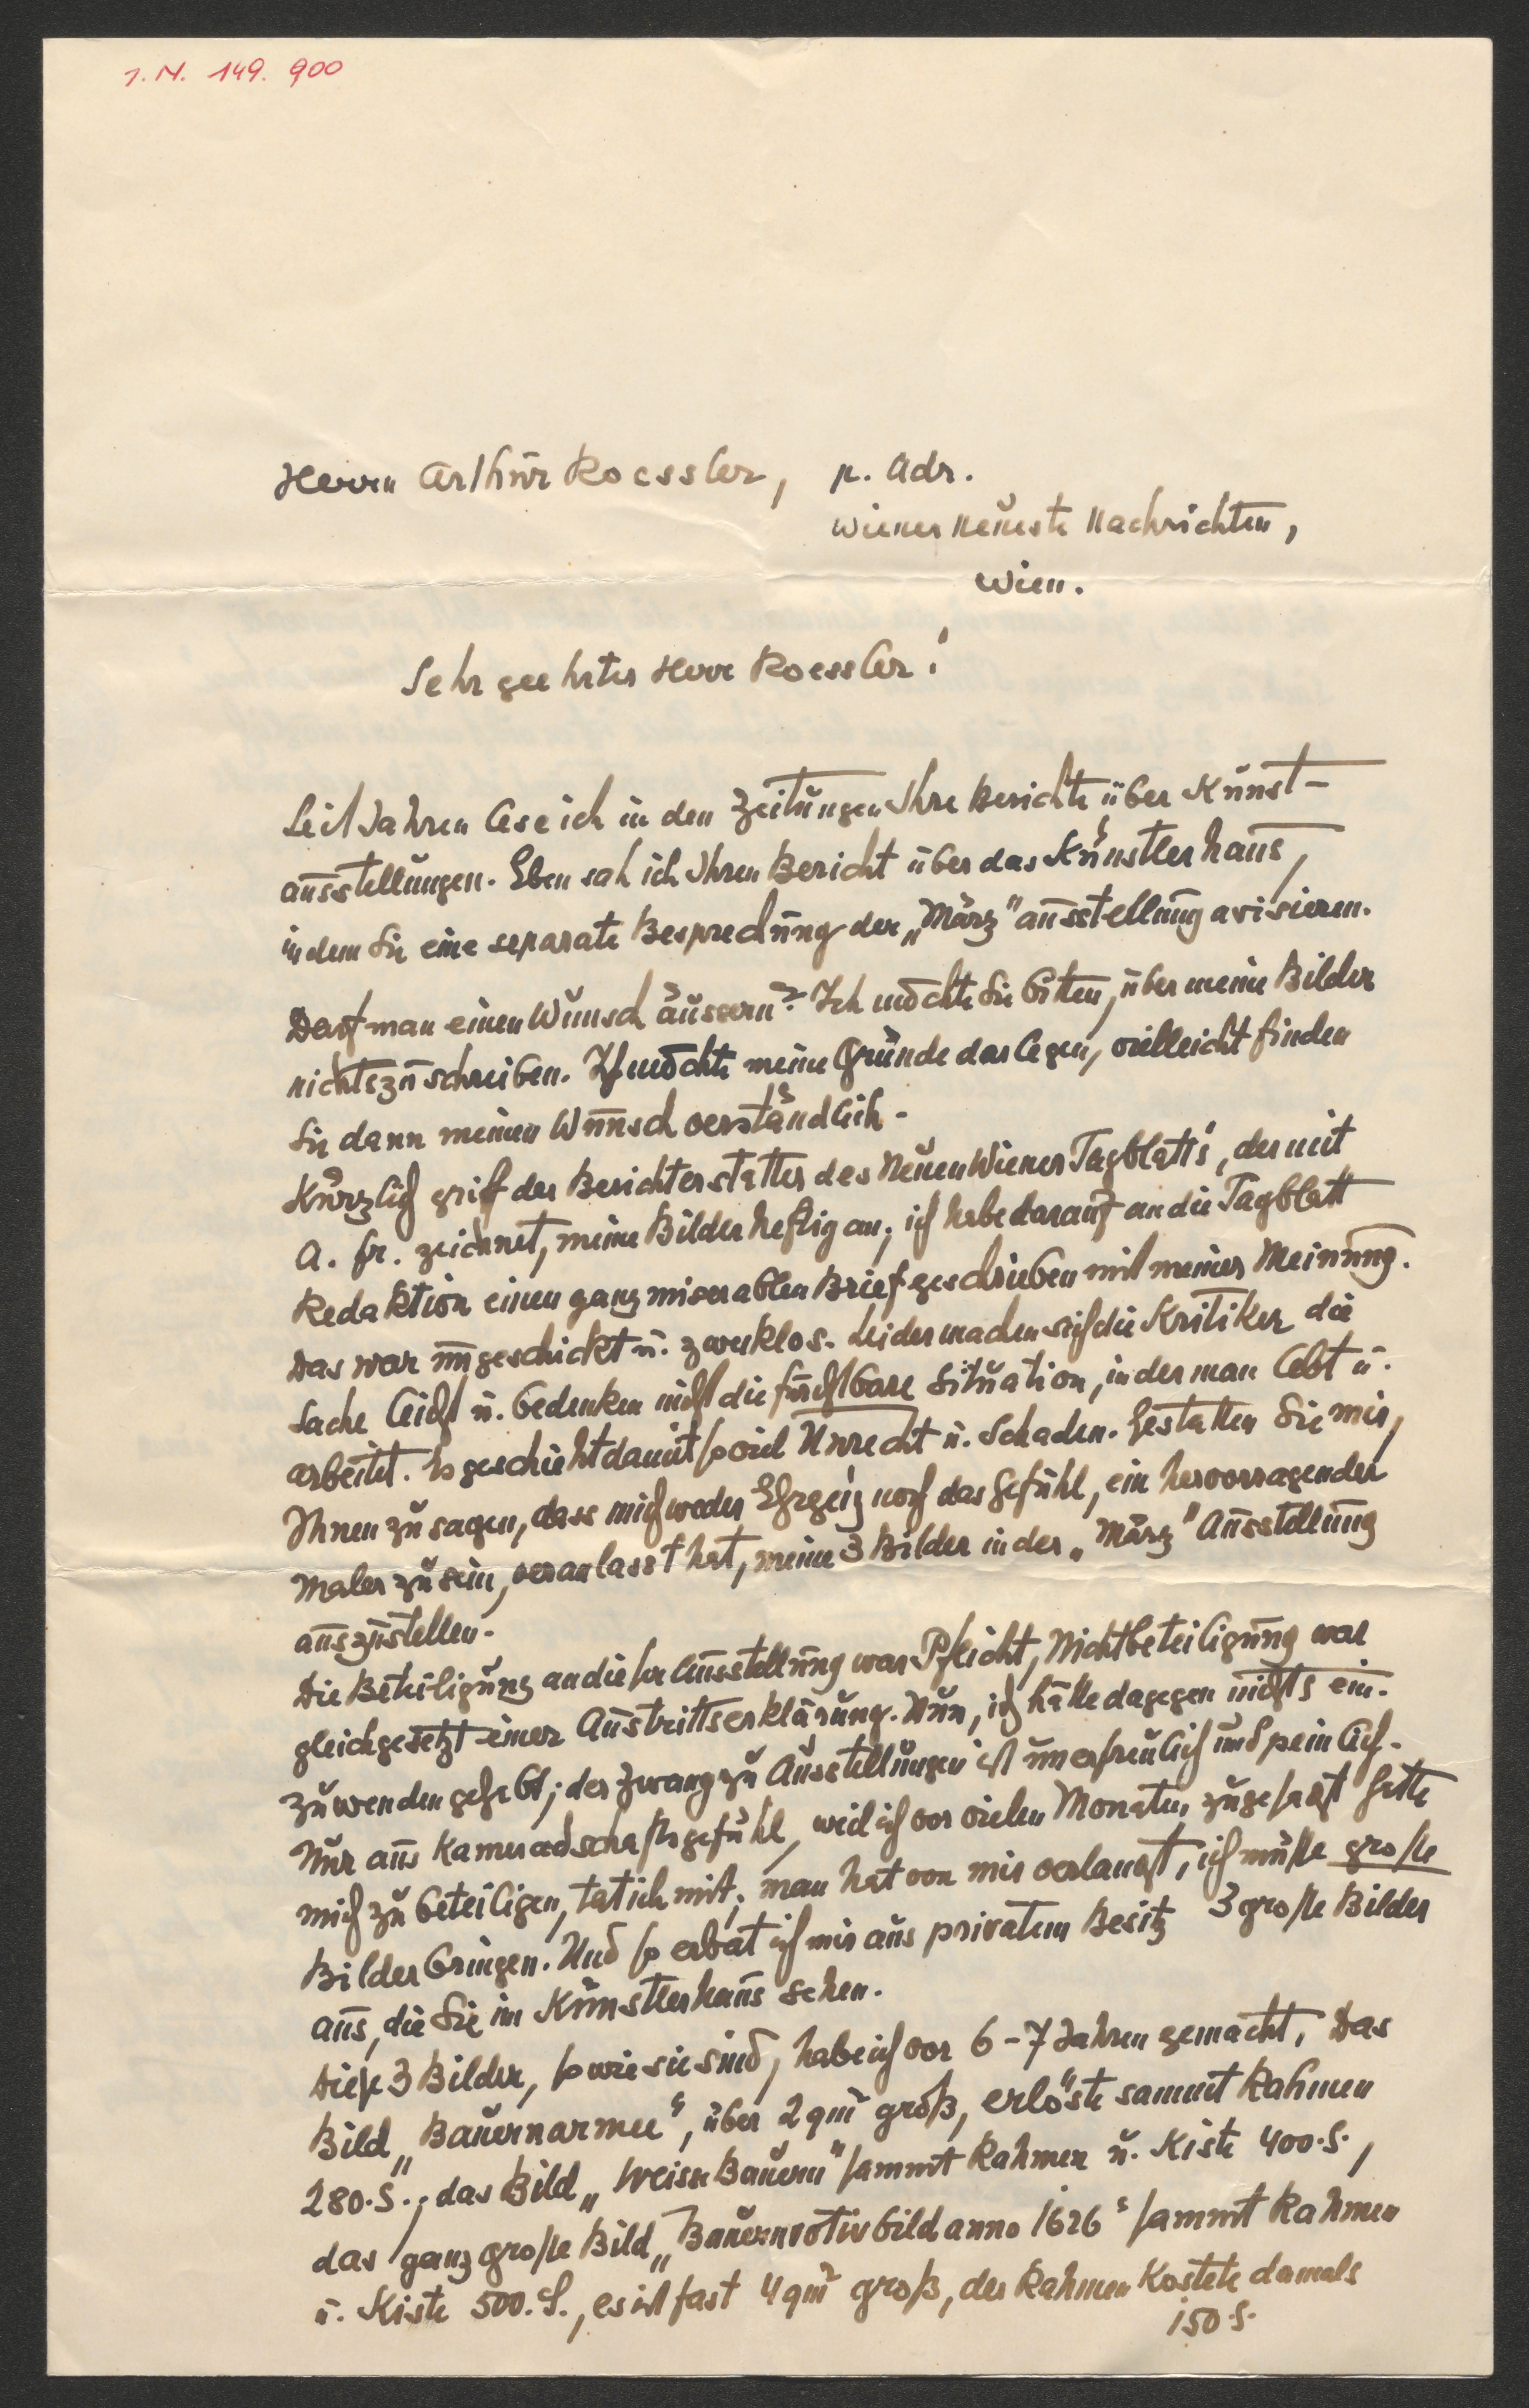 J. N. 149. 900
Herrn Arthur Roessler, p. Adr.
Wiener Neueste Nachrichten,
Wien.
Sehr geehrter Herr Roessler!
Seit Jahren lese ich in den Zeitungen Ihre Berichte über Kunst-
ausstellungen. Eben sah ich Ihren Bericht über das Künstlerhaus,
in dem Sie eine separate Besprechung der „März" ausstellung avisieren.
Darf man einen Wunsch äussern? Ich möchte Sie bitten, über meine Bilder
nichts zu schreiben. Ich möchte meine Gründe darlegen, vielleicht finden
Sie dann meinen Wunsch verständlich -
Kürzlich griff der Berichterstatter des Neuen Wiener Tagblatts, der mit
A. fr. zeichnet, meine Bilder heftig an; ich habe darauf an die Tagblatt
Redaktion einen ganz miserablen Brief geschrieben mit meiner Meinung.
Das war ungeschickt u. zwecklos. Leider machen sich die Kritiker die
Sache leicht u. bedenken nicht die furchtbare Situation, in der man lebt u.
arbeitet. Es geschieht damit so viel Unrecht u. Schaden. Gestatten Sie mir,
Ihnen zu sagen, dass mich weder Ehrgeiz noch das Gefühl, ein hervorragender
Maler zu sein, veranlasst hat, meine 3 Bilder in der „März" Ausstellung
auszustellen.
Die Beteiligung an dieser Ausstellung war Pflicht, Nichtbeteiligung war
gleichgesetzt einer Austrittserklärung. Nun, ich hätte dagegen nichts ein-
zuwenden gehabt; der Zwang zu Ausstellungen ist unerfreulich und peinlich.
Nur aus Kameradschaftsgefühl, weil ich vor vielen Monaten zugesagt hatte
mich zu beteiligen, tat ich mit; man hat von mir verlangt, ich müsse große
Bilder bringen. Und so erbat ich mir aus privatem Besitz 3 große Bilder
aus, die Sie im Künstlerhaus sehen.
Diese 3 Bilder, so wie sie sind, habe ich vor 6-7 Jahren gemacht. Das
Bild „Bauernarmee", über 2 qm groß, erlöste sammt Rahmen
280.S.; das Bild „Weisse Bauern" sammt Rahmen u. Kiste 400.S.,
das ganz große Bild „Bauernvotivbild anno 1626" sammt Rahmen
u. Kiste 500.S., es ist fast 4 qm groß, der Rahmen kostete damals
150 S.